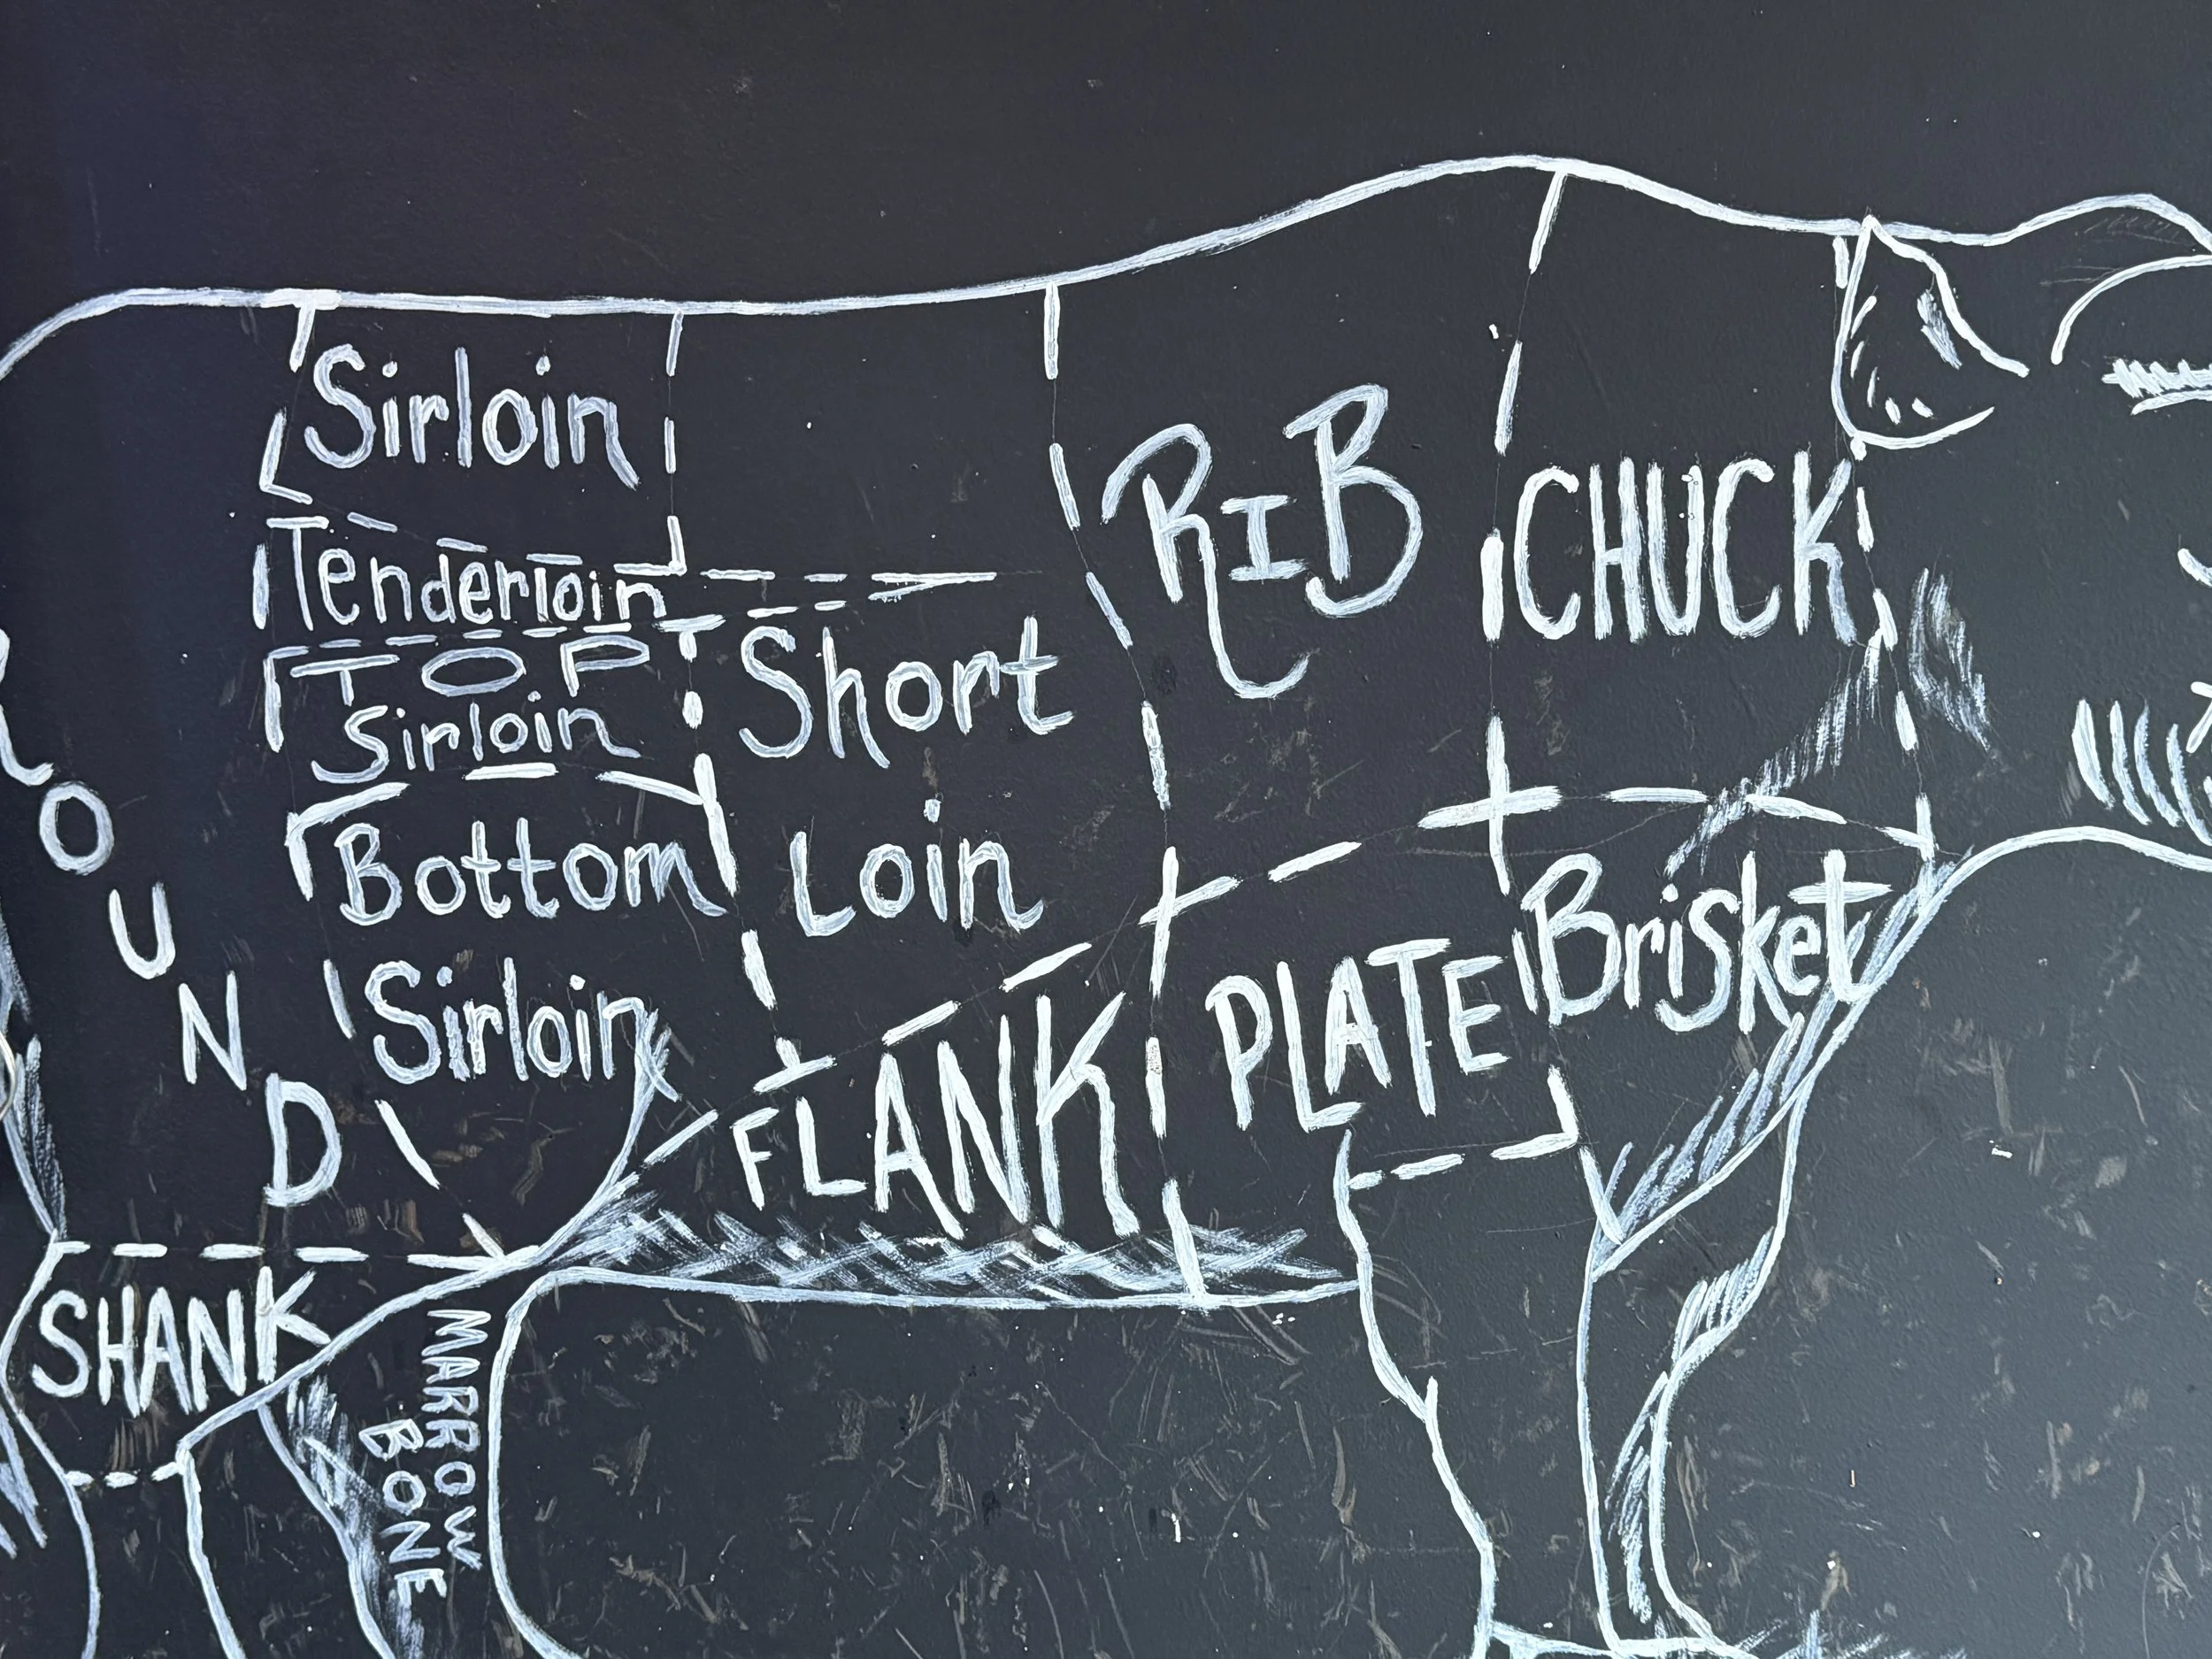 Sirloin
Tenderloin
TOP
Sirloin
Bottom
Sirloin
Short
Loin
RIB
CHUCK
ROUND
FLANK
PLATE
Brisket
SHANK
MARROW
BONE